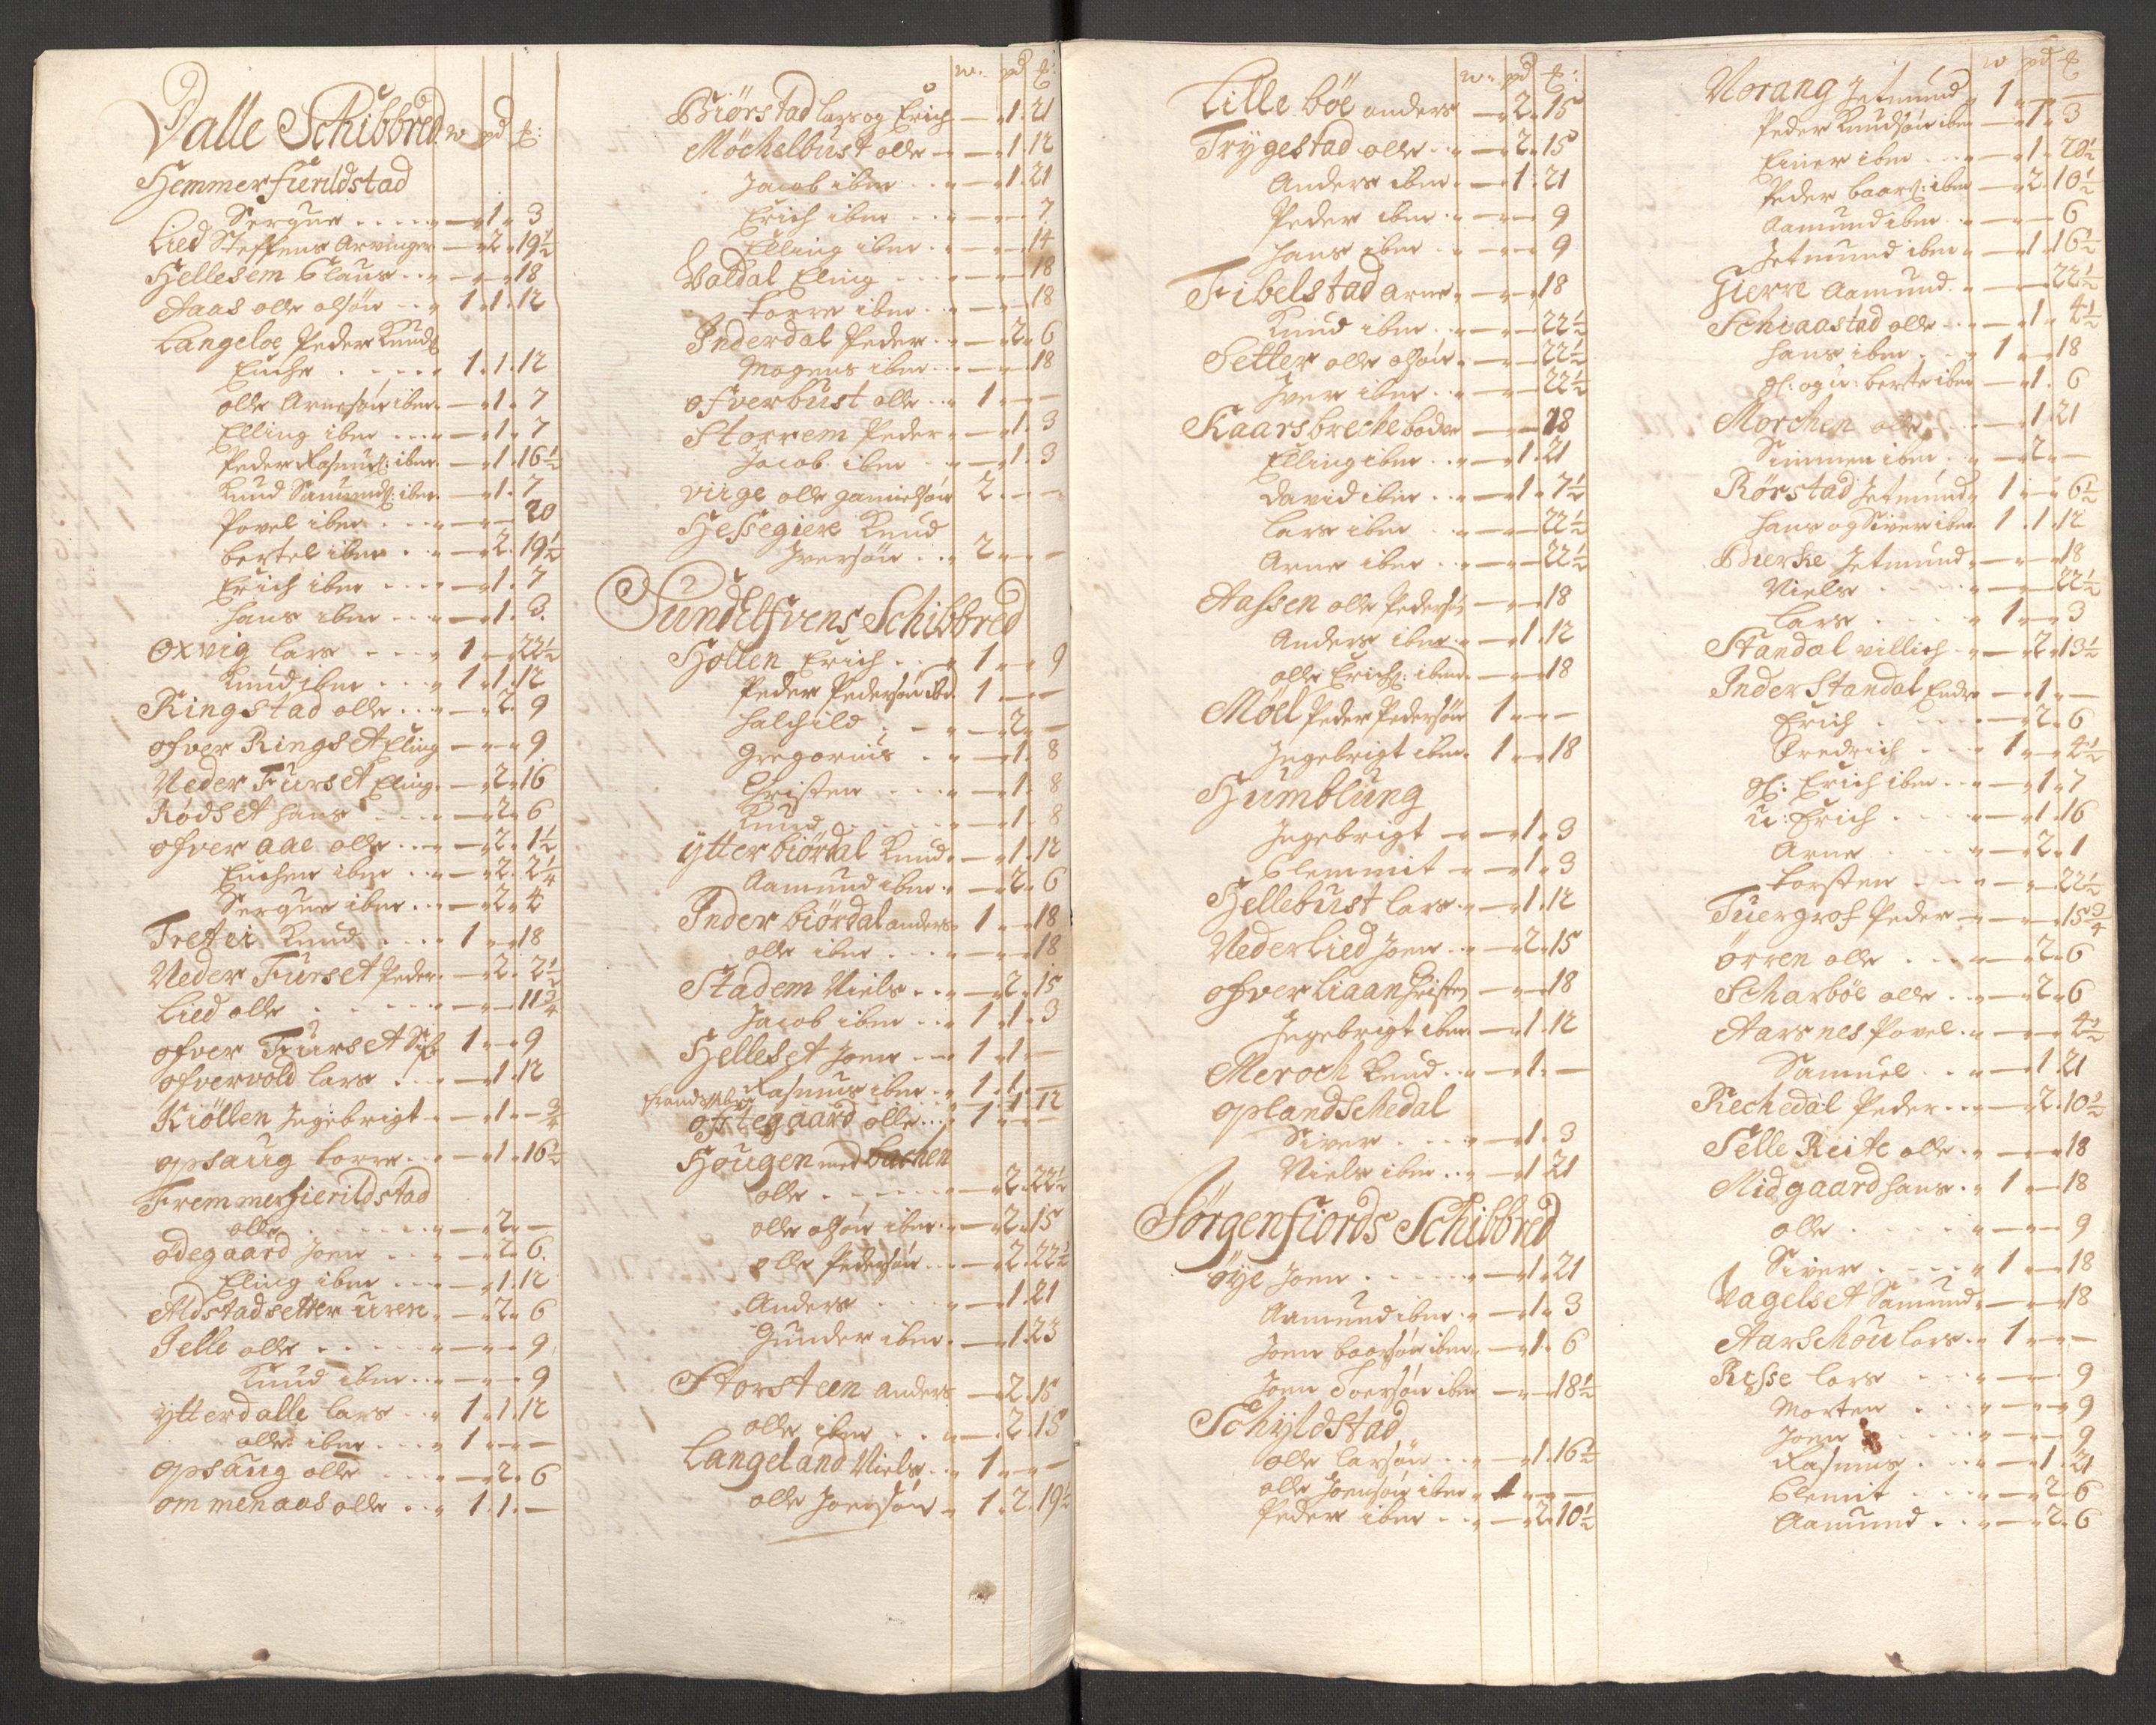 Dalle Schibbred w pd ℔:
Hemmerfierildstad
Serque . . . . . — 1 " 3
Lied Steffens Arvinger — 2 " 19½
Hellesem Claus . . " — " — " 18
Aaas olle olsøn . . " 1 " 1 " 12
Langeloe Peder Knuds
Enche . . . . . 1 . 1 . 12
olle Arnesøn ibm — 1 " 7
Elling ibm . . . — 1 " 7
Peder Rasmus: ibm — 1 . 16½
Knud Samunds: ibm — 1 . 7
Povel ibm . . . — " — 20
bertel ibm . . — 2 . 19½
Erich ibm . . . — 1 . 7
hans ibm . . . — 1 . 3.
Oxvig lars . . . 1 — " 22½
Knud ibm . . . 1 " 1 . 12
Ringstad olle . . " — 2 . 9
ofver Ringset Eling — " — " 9
Neder Furset Eling . — 2 " 16
Rødset hans . . . — 2 " 6
ofver aae olle . . — 2 " 1½
Enchen ibm . . " — 2 . 2¼
Serque ibm . . . — 2 " 4
Tretei Knud . . . 1 " — " 18
Neder Furset Peder . — 2 . 2½
Lied olle . . . . " — " — 11¾
ofver Furset Sif: 1 " — " 9
ofvervold lars . . . — 1 . 12
Kiøllen Ingebrigt . " — 1 " — ¾
opsaug torre . . " — 1 " 16½
Fremmerfierildstad
olle . . . . . " — 2 " —
ødegaard Joen . . " — 2 " 6.
Eling ibm . . . — 1 . 12
Aldstadsetter uren . — 2 " 6
Jelle olle . . . . . " — " — 9
Knud ibm . . " — " — 9
ytterdalle lars . . " 1 " 1 . 12
olle ibm . . . " 1 " — " —
opsaug olle . . . " — 2 " 6
ommenaas olle . . " 1 . 1 . —
w. pd ℔:
Biørstad lars og Erich — 1 . 21
Møchelbust olle . — 1 . 12
Jacob ibm . . " — 1 . 21
Erich ibm . . " — " — 7
Elling ibm . . " — " — 14
Valdal Eling . . . . " — " — 18
torre ibm . . " — " — 18
Inderdal Peder . . — 2 " 6
Mogens ibm . . " — " — 18
ofverbust olle . . " 1 " — " —
Storrem Peder . — 1 . 3
Jacob ibm . . " — 1 . 3
virge olle gamelsøn 2 . — " —
Hessegiere Knud
Iversøn . . " 2 " — " —
Sundelfvens Schibbred
Hollen Erich . . " 1 " — " 9
Peder Pedersøn ibd. 1 " — " —
halchild . . . " — 2 " —
Gregorius . . " — 1 . 8
Christen . . . " — 1 . 8
Knud . . . . . " — 1 . 8
ytter biørdal Knud . — 1 . 12
Aamund ibm . " — 2 " 6
Inder biørdal anders 1 " — 18
olle ibm . . . " — " — 18
Stadem Niels . . " — 2 . 15
Jacob ibm . . " 1 . 1 . 3
Helleset Joen . . — 1 " 1 " —
Rasmus ibm . . " 1 . 1 . —
Frands ibm . . . " — 1 . 1 . 12
oftegaard olle . . . 1 " — " —
Hougen med bachen
olle . . . . . — 2 . 22½
olle olsøn ibm . — 2 . 15
olle Pedersøn . . — 2 . 22½
Anders . . . . " — 1 . 21
Gunder ibm . — 1 . 23
Storsteen anders — 2 . 15
olle ibm . . " — . 2 . 15
Langeland Niels . . " 1 " — " —
olle Joensøn . " 1 . 2 . 19½
w. pd ℔:
Lille bøe anders — 2 . 15
Trygestad olle . . " — 2 . 15
Anders ibm . — 1 . 21
Peder ibm . " — " — 9
hans ibm . . " — " — 9
Fibelstad arne . " — " — 18
Knud ibm . . " — " — 22½
Setter olle olsøn . " — " — 22½
Iver ibm . . " — " — 22½
Kaarsbreche bader — " — 18
Elling ibm . . " — 1 . 21
david ibm . . " — 1 . 7½
lars ibm . . " — " — 22½
Arne ibm . . " — " — 22½
Aassen olle Pedersøn — " — 18
Anders ibm . " — 1 . 12
olle Erichs: ibm . — " — 18
Møel Peder Pedersøn 1 " — " —
Ingebrigt ibm . 1 " — 18
Humblung
Ingebrigt . " — 1 . 3
Clemmit . " — 1 " 3
Hellebust lars . " — 1 . 12
Nederlied Joen . " — 2 . 15
ofver liaan Christen — " — 18
Ingebrigt ibm . — 1 . 12
Meroch Knud . . " — 1 . —
oplandschedal
Siver . . . " — 1 . 3
Niels ibm . . " — 1 . 21
Jørgenfiords Schibbred
øye Joen . . . . " — 1 . 21
Aamund ibm . " — 1 " 3
Joen baarsøn ibm . — 1 . 6
Joen Toersøn ibm — " — 18½
Schyldstad
olle larsøn . . " — 1 . 16½
olle Joensøn ibm " 1 " — " —
Peder ibm . . . " — 2 . 10½
w pd ℔
Norang Jetmund " 1 " — " —
Peder Knudsøn ibm — 1 " 3
Einer ibm . . . " — 1 . 20½
Peder baars: ibm — 2 . 10½
Aamund ibm . . " — " — 6
Jetmund ibm . . " — 1 . 16½
Gierre Aamund . " — " — 22½
Schiaastad olle . . " — 1 " 4½
hans ibm . . . " 1 " — 18
gl: og u: berte ibm — 1 . 6
Morchen olle . . . " — 1 . 21
Simmen ibm . . " — 2 " —
Rørstad Jetmund . 1 " — " 6½
hans og Siver ibm . 1 . 1 . 12
Bierke Jetmund . " — " — 18
Niels . . . . . " — " — 22½
lars . . . . . " 1 " — " 3
Standal villich . " — 2 . 13½
Inder Standal Ender — 1 " —
Erich . . . . . " — 2 . 6
Fredrich . . . " 1 " — " 4½
gl: Erich ibm . . " — 1 . 7
u: Erich . . . " — 1 . 16
Arne . . . . . " — 2 . 1
torsten . . . " — " — 22½
Tuergrof Peder . " — " — 15¾
ørren olle . . . " — 2 " 6
Scharbøe olle . . " — 2 " 6
Aarsnes Povel . " — " — 4½
Samuel . . " — 1 . 21
Rechedal Peder . . . — 2 . 10½
Selle Reite olle . " — " — 18
Midgaard hans . " 1 " — 18
olle . . . . . " — " — 9
Siver . . . . " 1 " — 18
Vagelset Samund . — " — 18
Aarschou lars . " 1 " — " —
Resse lars . . . " — " — 9
Morten . . . " — " — 9
Joen . . . . " — " — 9
Rasmus . . . " — 1 . 21
Clemit . . . " — 2 . 6
Aamund . . " — 2 . 6